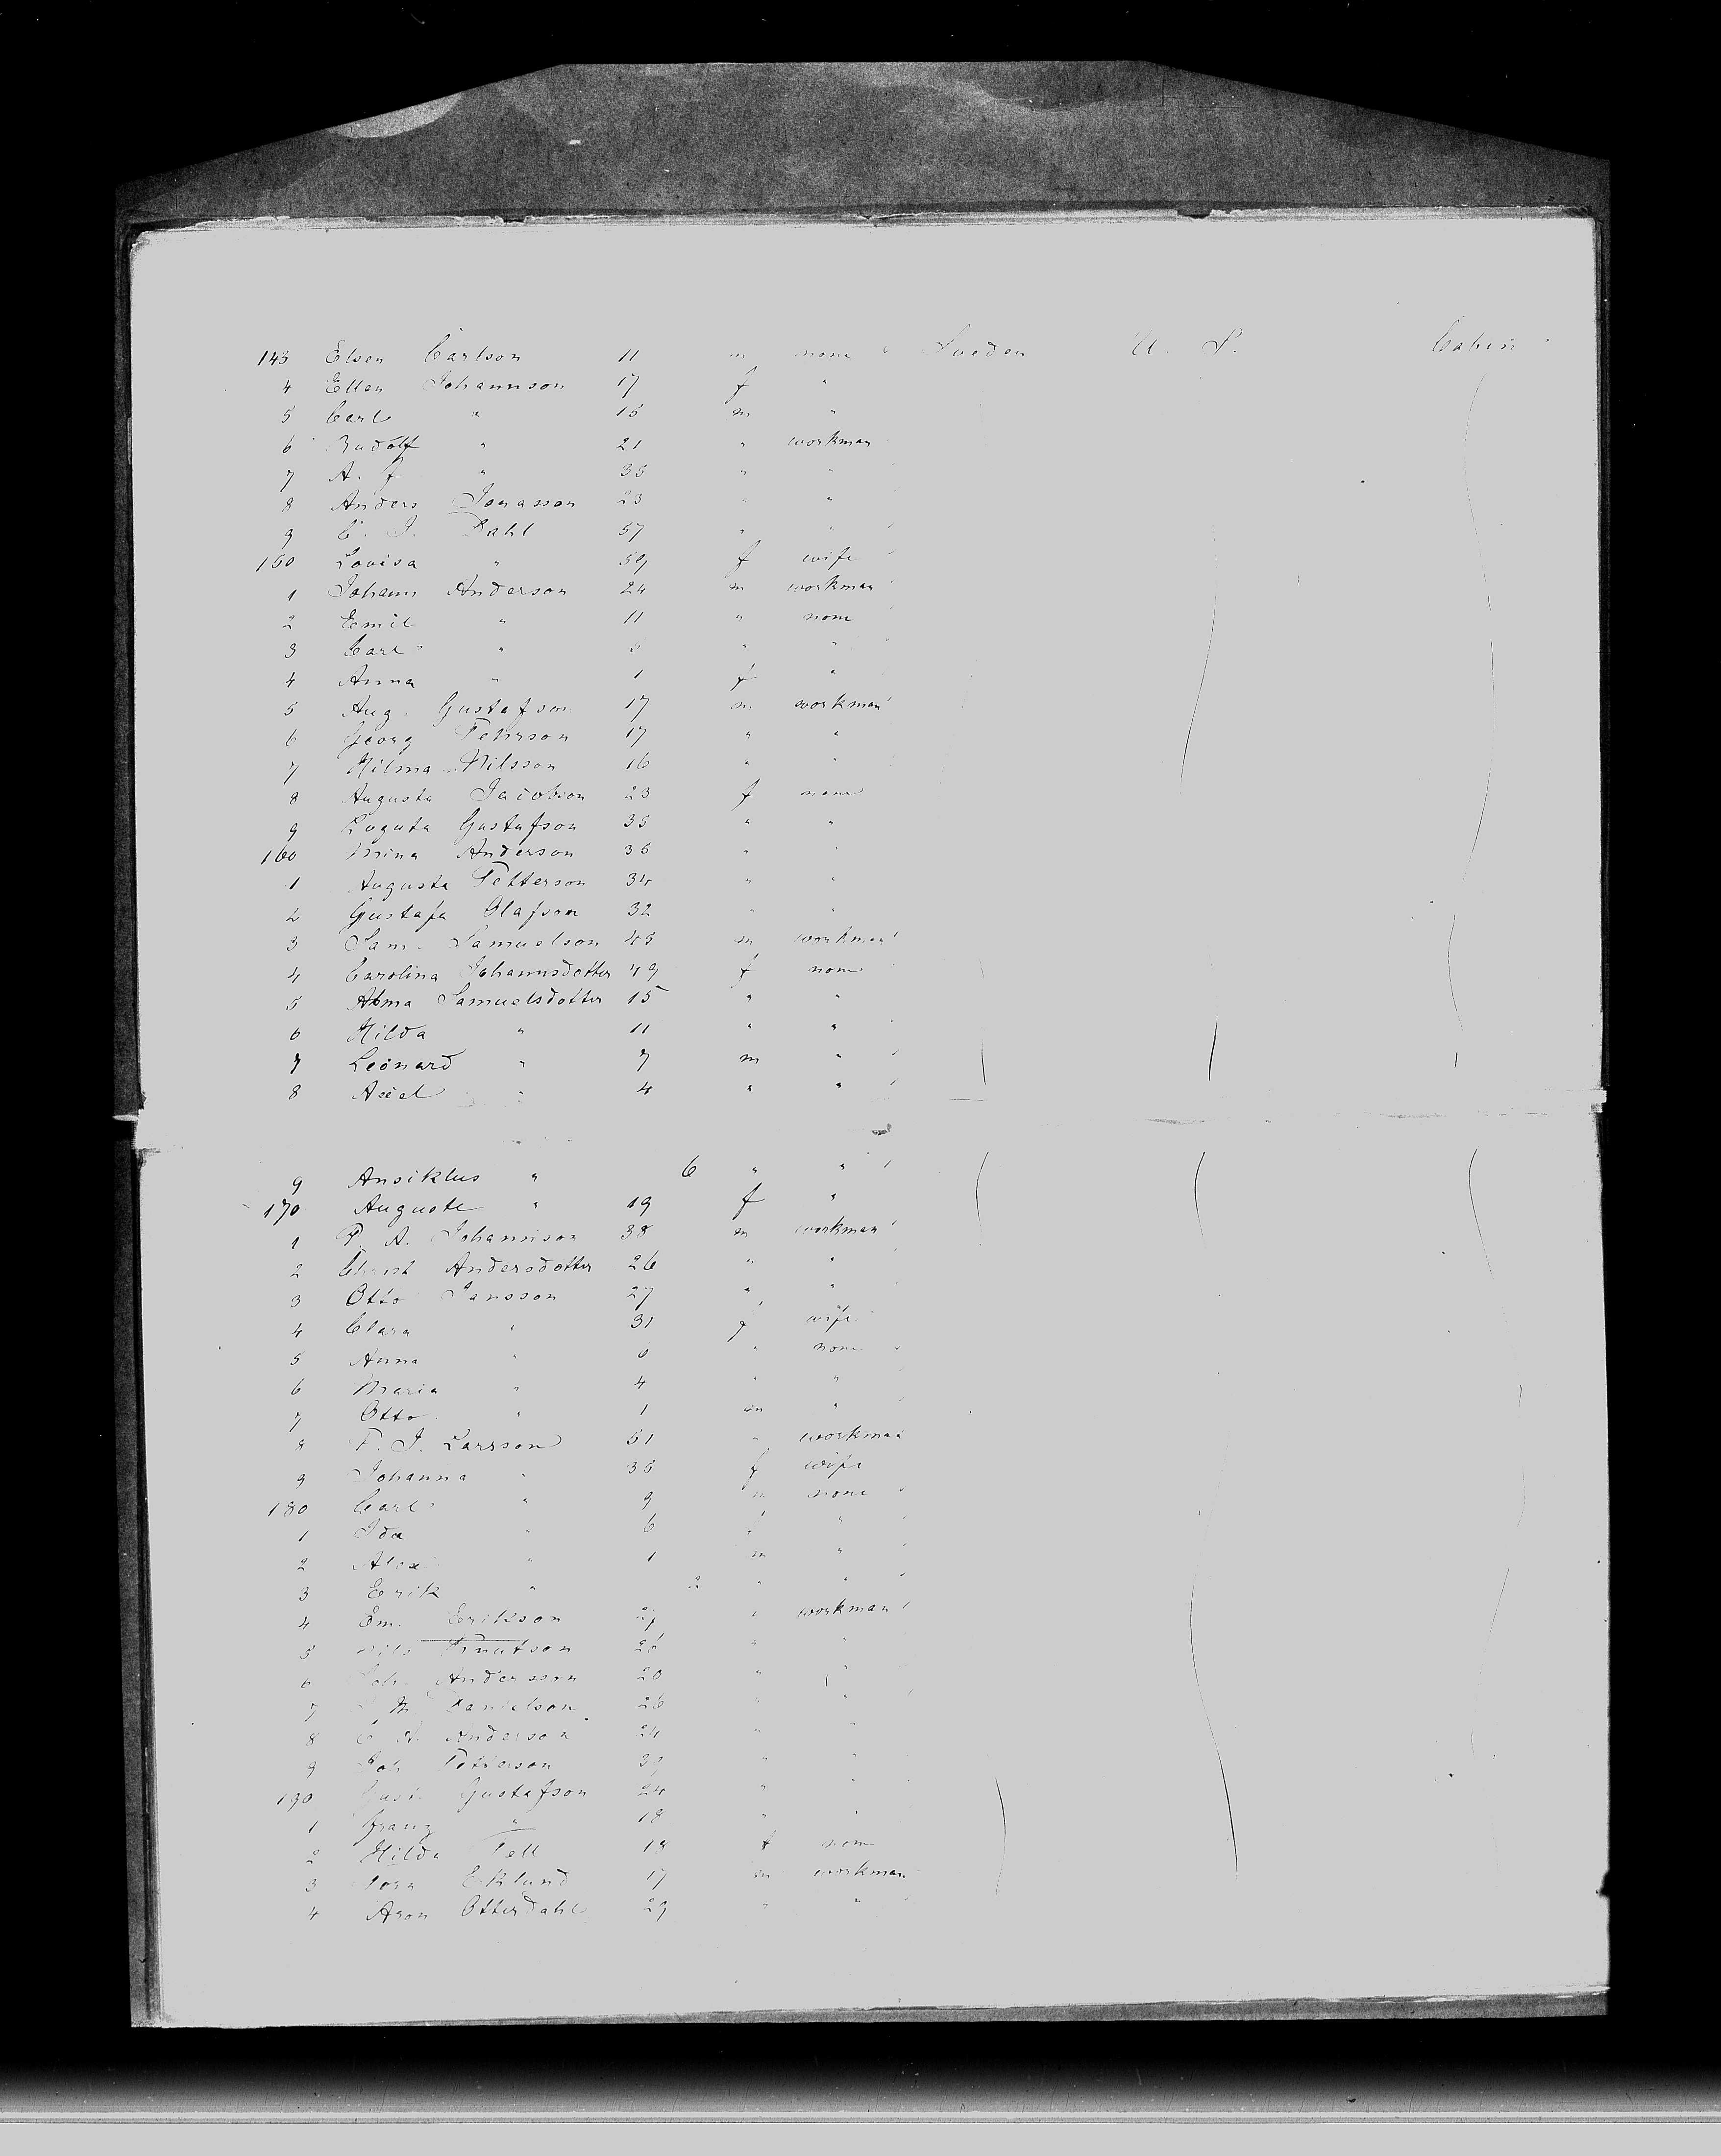 143 Elsen Carlson 11 m none Sweden U. S. Cabin
4 Ellen Johannson 17 f "
5 Carl " 15 m "
6 Rudolf " 21 " workman
7 A. J " 35 " "
8 Anders Jonasson 23 " "
9 C. J. Dahl 57 " "
150 Lovisa " 59 f wife
1 Johann Anderson 24 m workman
2 Emil " 11 " none
3 Carl " " "
4 Anna " 1 f "
5 Aug. Gustafson 17 m workman
6 Georg Pehrson 17 " "
7 Hilma Nilsson 16 " "
8 Augusta Jacobson 23 f none
9 Loguta Gustafson 35 " "
160 Mina Anderson 36 " "
1 Augusta Petterson 34 " "
2 Gustafa Olafson 32 " "
3 Sam. Samuelson 45 m workman
4 Carolina Johannsdotter 49 f none
5 Alma Samuelsdotter 15 " "
6 Hilda " 11 " "
7 Leonard " 7 m "
8 Axel " 4 " "
9 Ansiklus " 6 " "
170 Auguste " 19 f "
1 P. A. Johannson 38 m workman
2 Christ Andersdotter 26 " "
3 Otto Jansson 27 " "
4 Clara " 31 f wife
5 Anna " 6 " none
6 Maria " 4 " "
7 Otto " 1 m "
8 P. J. Larsson 51 " workman
9 Johanna " 35 f wife
180 Carl " 9 m none
1 Ida " 6 f "
2 Alex " 1 m "
3 Erik " 2 " "
4 Em. Erikson 27 " workman
5 Nils Knutson 26 " "
6 Joh. Andersson 20 " "
7 M Danielson 26 " "
8 C A. Anderson 24 " "
9 Joh Petterson 39 " "
190 Gust. Gustafson 24 " "
1 Franz " 18 " "
2 Hilda Tell 18 f none
3 Eklund 17 m workman
4 Aron Otterdahl 29 " "